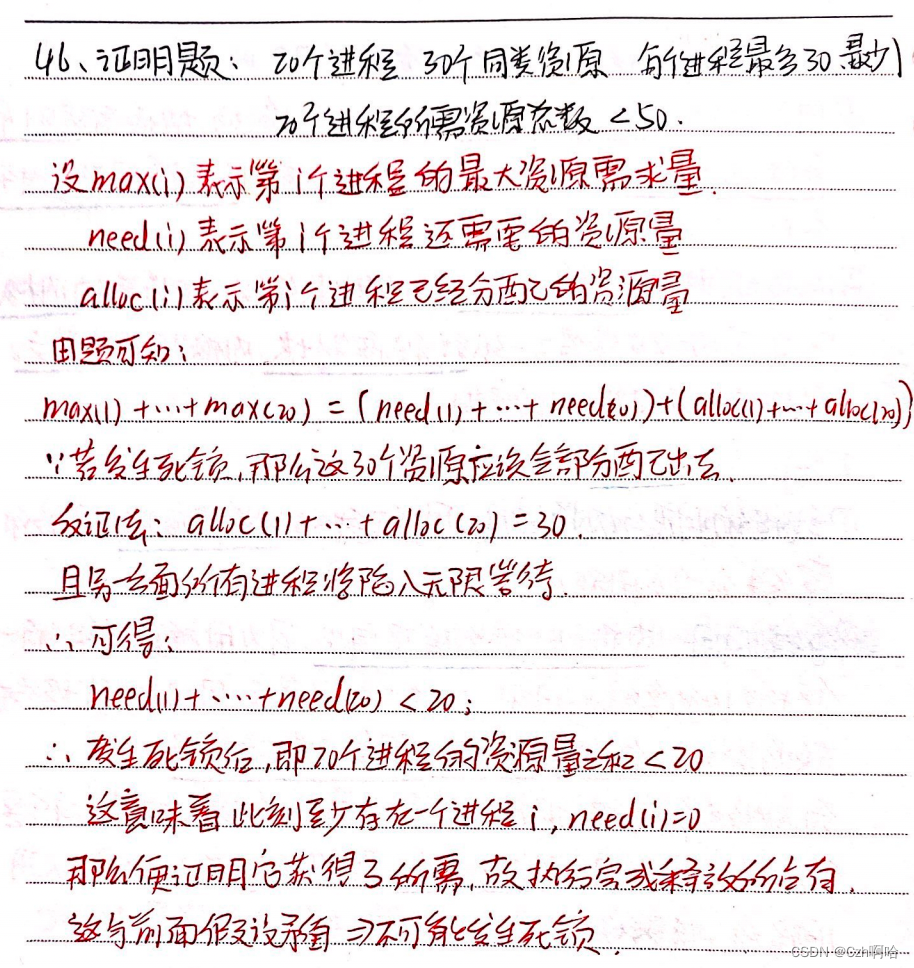 46、证明题: 20个进程 30个同类资源 每个进程最多30 最少1
20个进程所需资源总数 <50.
设max(i)表示第i个进程的最大资源需求量.
need(i)表示第i个进程还需要的资源量
alloc(i)表示第i个进程已经分配的资源量
由题可知:
max(1)+…+max(20) = (need(1)+…+need(20))+(alloc(1)+…+alloc(20))
∵若发生死锁,那么这30个资源应该全部分配出去.
反证法: alloc(1)+…+alloc(20)=30.
且另一方面所有进程将陷入无限等待.
∴可得:
need(1)+……+need(20) <20;
∴发生死锁后,即20个进程的资源量之和<20
这意味着此刻至少存在一个进程i, need(i)=0
那么便证明它获得了所需,故执行完成释放所占有.
这与前面假设矛盾⇒不可能发生死锁.
CSDN @Gzh啊哈